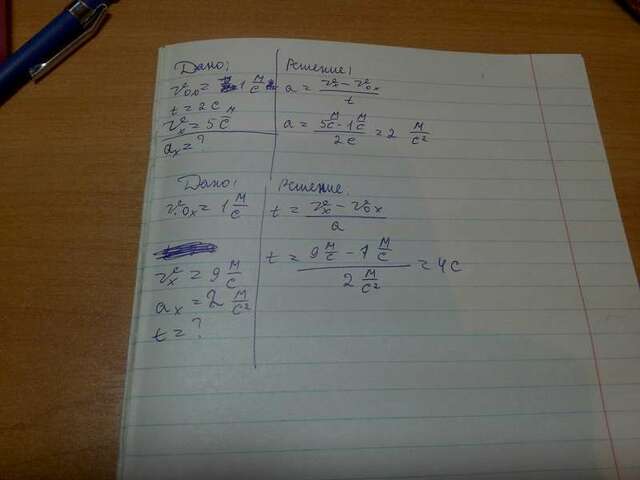 Дано:
v₀ₓ = 1 м/с
t = 2 с
vₓ = 5 м/с
aₓ = ?
Решение:
a = (vₓ − v₀ₓ)/t
a = (5 м/с − 1 м/с)/(2 с) = 2 м/с²
Дано:
v₀ₓ = 1 м/с
vₓ = 9 м/с
aₓ = 2 м/с²
t = ?
Решение:
t = (vₓ − v₀ₓ)/a
t = (9 м/с − 1 м/с)/(2 м/с²) = 4 с